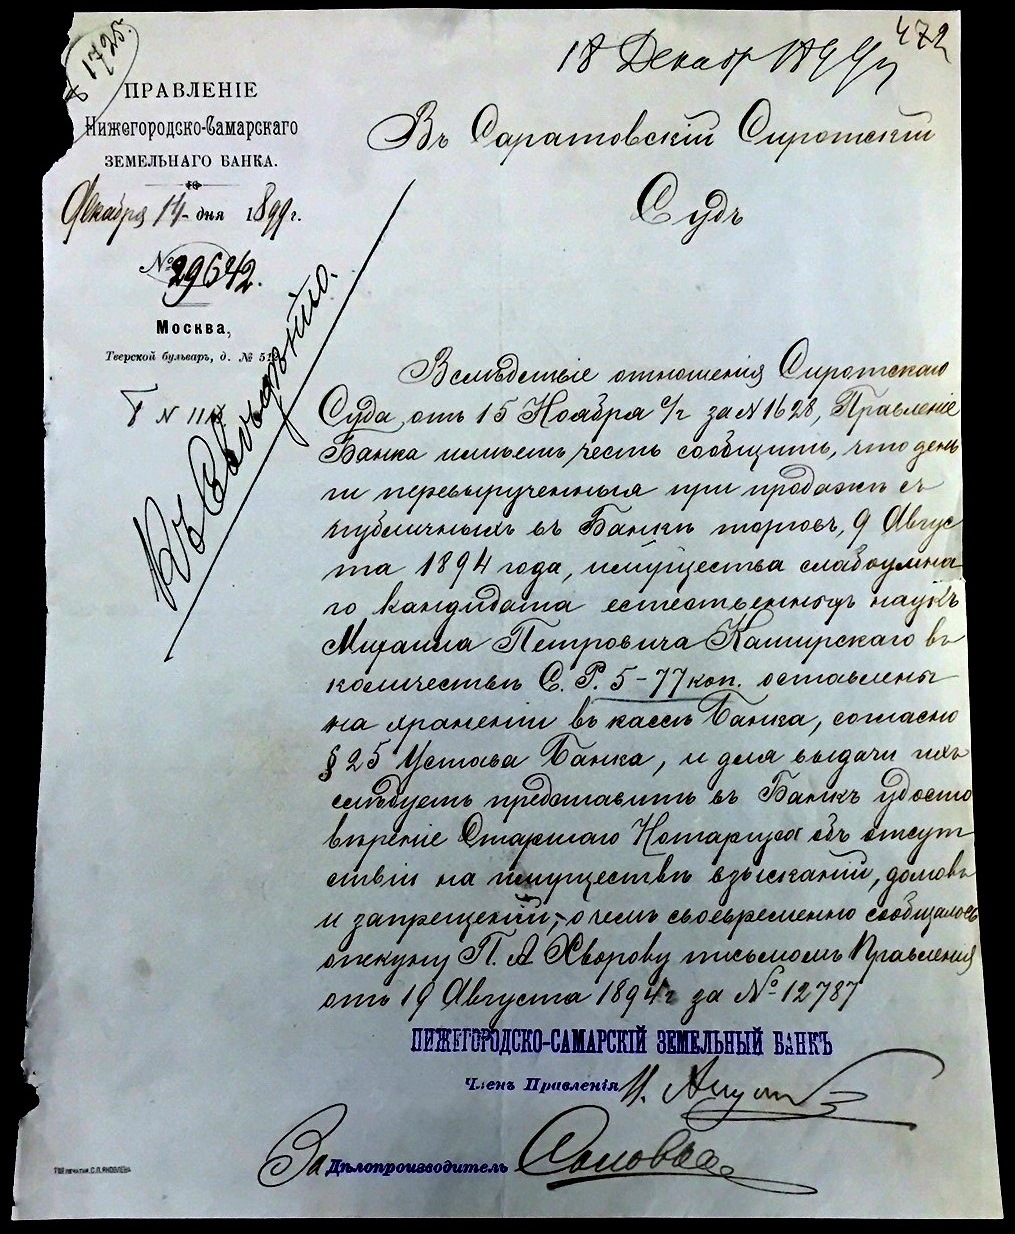 1725.
472
18 Декабр 1899
ПРАВЛЕНІЕ
Нижегородско-Самарскаго
ЗЕМЕЛЬНАГО БАНКА.
Декабря 14 дня 1899 г.
№ 29642.
Москва,
Тверской бульваръ, д. № 512
Въ Саратовскій Сиротскій
Судъ
Къ свѣдѣнію.
Вслѣдствіе отношенія Сиротскаго
Суда отъ 15 Ноября с/г за N 1628, Правленіе
Банка имѣетъ честь сообщить, что день
ги перевырученныя при продажѣ съ
публичныхъ въ Банкѣ торговъ, 9 Авгус
та 1894 года, имущества слабоумна
го кандидата естественныхъ наукъ
Михаила Петровича Каширскаго въ
количествѣ С. Р. 5-77 коп. оставлены
на храненіи въ кассѣ Банка, согласно
§ 25 Устава Банка, и для выдачи ихъ
слѣдуетъ представить въ Банкъ удосто
вѣреніе Старшаго Нотаріуса объ отсут
ствіи на имуществѣ взысканій, долговъ
и запрещеній, о чемъ своевременно сообщалось
опекуну П. А Хворову письмомъ Правленія
отъ 19 Августа 1894 г за № 12787
НИЖЕГОРОДСКО-САМАРСКІЙ ЗЕМЕЛЬНЫЙ БАНКЪ
Членъ Правленія
За Дѣлопроизводитель
ТВЕ ПЕЧАТНИ. С. П. ЯКОВЛЕВА